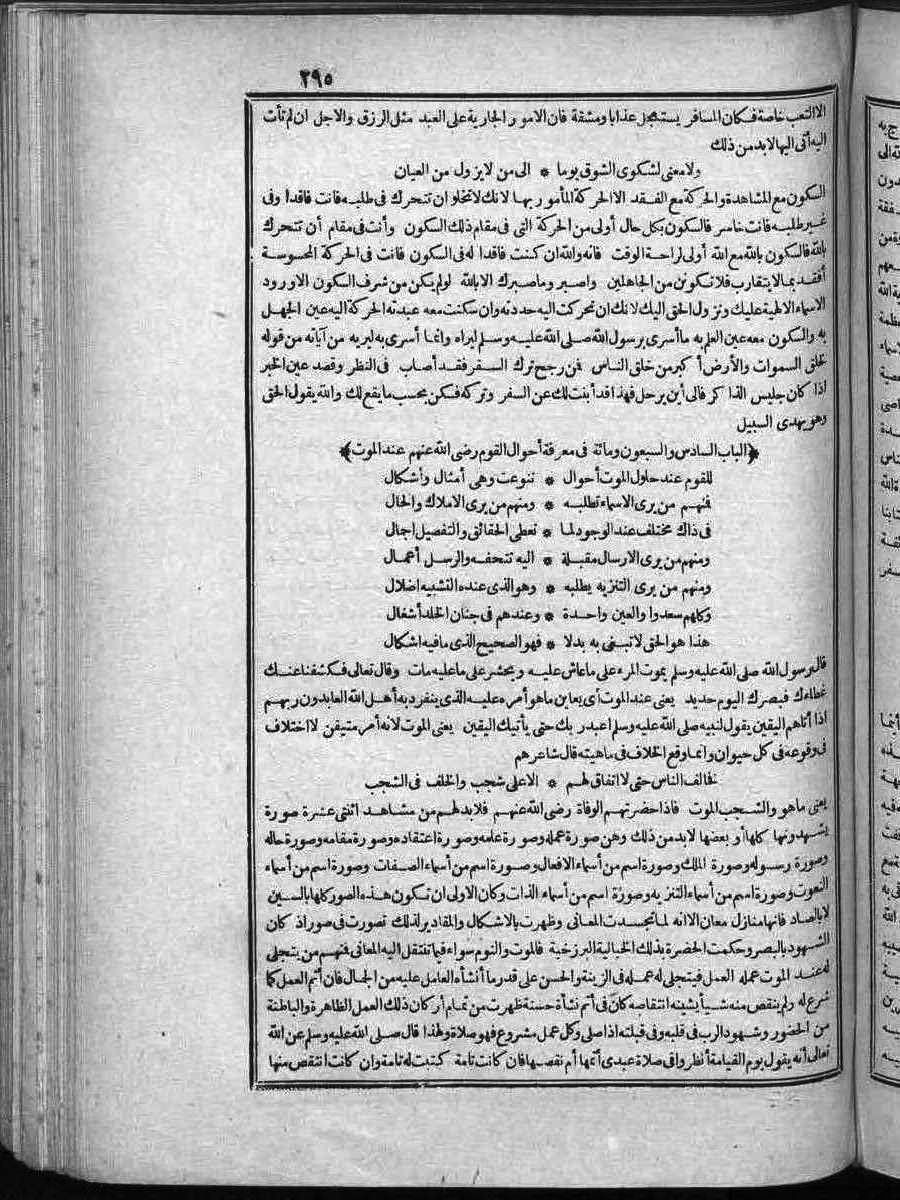 ٢٩٥
الا التعب خاصة فكان المسافر يستعجل عذابا ومشقة فان الامور الجارية على العبد مثل الرزق والاجل ان لم تأت
اليه أتى اليها لابد من ذلك
ولا معنى لشكوى الشوق يوما * الى من لا يزول من العيان
السكون مع المشاهدة والحركة مع الفقد الا الحركة المأمور بها لانك لا تخلو ان تتحرك فى طلبه فانت فاقد أو فى
غير طلبه فانت خاسر فالسكون بكل حال أولى من الحركة التى فى مقام ذلك السكون وأنت فى مقام أن تتحرك
بالله فالسكون بالله مع الله أولى لراحة الوقت فانه والله ان كنت فاقدا له فى السكون فانت فى الحركة المحسوسة
أفقد بما لا يتقارب فلا تكونن من الجاهلين واصبر وما صبرك الا بالله لو لم يكن من شرف السكون الا ورود
الاسماء الالهية عليك ونزول الحق اليك لانك ان تحركت اليه حددته وان سكنت معه عبدته الحركة اليه عين الجهل
به والسكون معه عين العلم به ما أسرى برسول الله صلى الله عليه وسلم ليراه وانما أسرى به ليريه من آياته من قوله
لخلق السموات والأرض أكبر من خلق الناس فمن رجح ترك السفر فقد أصاب فى النظر وقصد عين الخبر
اذا كان جليس الذاكر فالى أين يرحل فهذا قد أبنت لك عن السفر وتركه فكن بحسب ما يقع لك والله يقول الحق
وهو يهدى السبيل
﴿الباب السادس والسبعون ومائة فى معرفة أحوال القوم رضى الله عنهم عند الموت﴾
للقوم عند حلول الموت أحوال * تنوعت وهى أمثال وأشكال
فمنهم من يرى الاسماء تطلبه * ومنهم من يرى الاملاك والحال
فى ذاك مختلف عند الوجود لما * تعطى الحقائق والتفصيل اجمال
ومنهم من يرى الارسال مقبلة * اليه تتحفه والرسل أعمال
ومنهم من يرى التنزيه يطلبه * وهو الذى عنده التشبيه اضلال
وكلهم سعدوا والعين واحدة * وعندهم فى جنان الخلد أشغال
هذا هو الحق لا تبغى به بدلا * فهو الصحيح الذى ما فيه اشكال
قال رسول الله صلى الله عليه وسلم يموت المرء على ما عاش عليه ويحشر على ما عليه مات وقال تعالى فكشفنا عنك
غطاءك فبصرك اليوم حديد يعنى عند الموت أى يعاين ما هو أمره عليه الذى ينفرد به أهل الله العابدون ربهم
اذا أتاهم اليقين يقول لنبيه صلى الله عليه وسلم اعبد ربك حتى يأتيك اليقين يعنى الموت لانه أمر متيقن لا اختلاف
فى وقوعه فى كل حيوان وانما وقع الخلاف فى ماهيته قال شاعرهم
تخالف الناس حتى لا اتفاق لهم * الا على شجب والخلف فى الشجب
يعنى ما هو والشجب الموت فاذا حضرتهم الوفاة رضى الله عنهم فلابد لهم من مشاهد اثنتى عشرة صورة
يشهدونها كلها أو بعضها لابد من ذلك وهن صورة عمله وصورة علمه وصورة اعتقاده وصورة مقامه وصورة حاله
وصورة رسوله وصورة الملك وصورة اسم من أسماء الافعال وصورة اسم من أسماء الصفات وصورة اسم من أسماء
النعوت وصورة اسم من أسماء التنزيه وصورة اسم من أسماء الذات وكان الاولى ان تكون هذه الصور كلها بالسين
لا بالصاد فانها منازل معان الا انه لما تجسدت المعانى وظهرت بالاشكال والمقادير لذلك تصورت فى صور اذ كان
الشهود بالبصر وحكمت الحضرة بذلك الخيالية البرزخية فالموت والنوم سواء فيما تنتقل اليه المعانى فمنهم من يتجلى
له عند الموت عمله العمل فيتجلى له عمله فى الزينة والحسن على قدر ما أنشأه العامل عليه من الجمال فان أتم العمل كما
شرع له ولم ينقص منه شيأ يشينه انتقاصه كان فى أتم نشأة حسنة ظهرت من تمام أركان ذلك العمل الظاهرة والباطنة
من الحضور وشهود الرب فى قلبه وفى قبلته اذا صلى وكل عمل مشروع فهو صلاة ولهذا قال صلى الله عليه وسلم عن الله
تعالى أنه يقول يوم القيامة أنظروا فى صلاة عبدى أتمها أم نقصها فان كانت تامة كتبت له تامة وان كانت انتقص منها